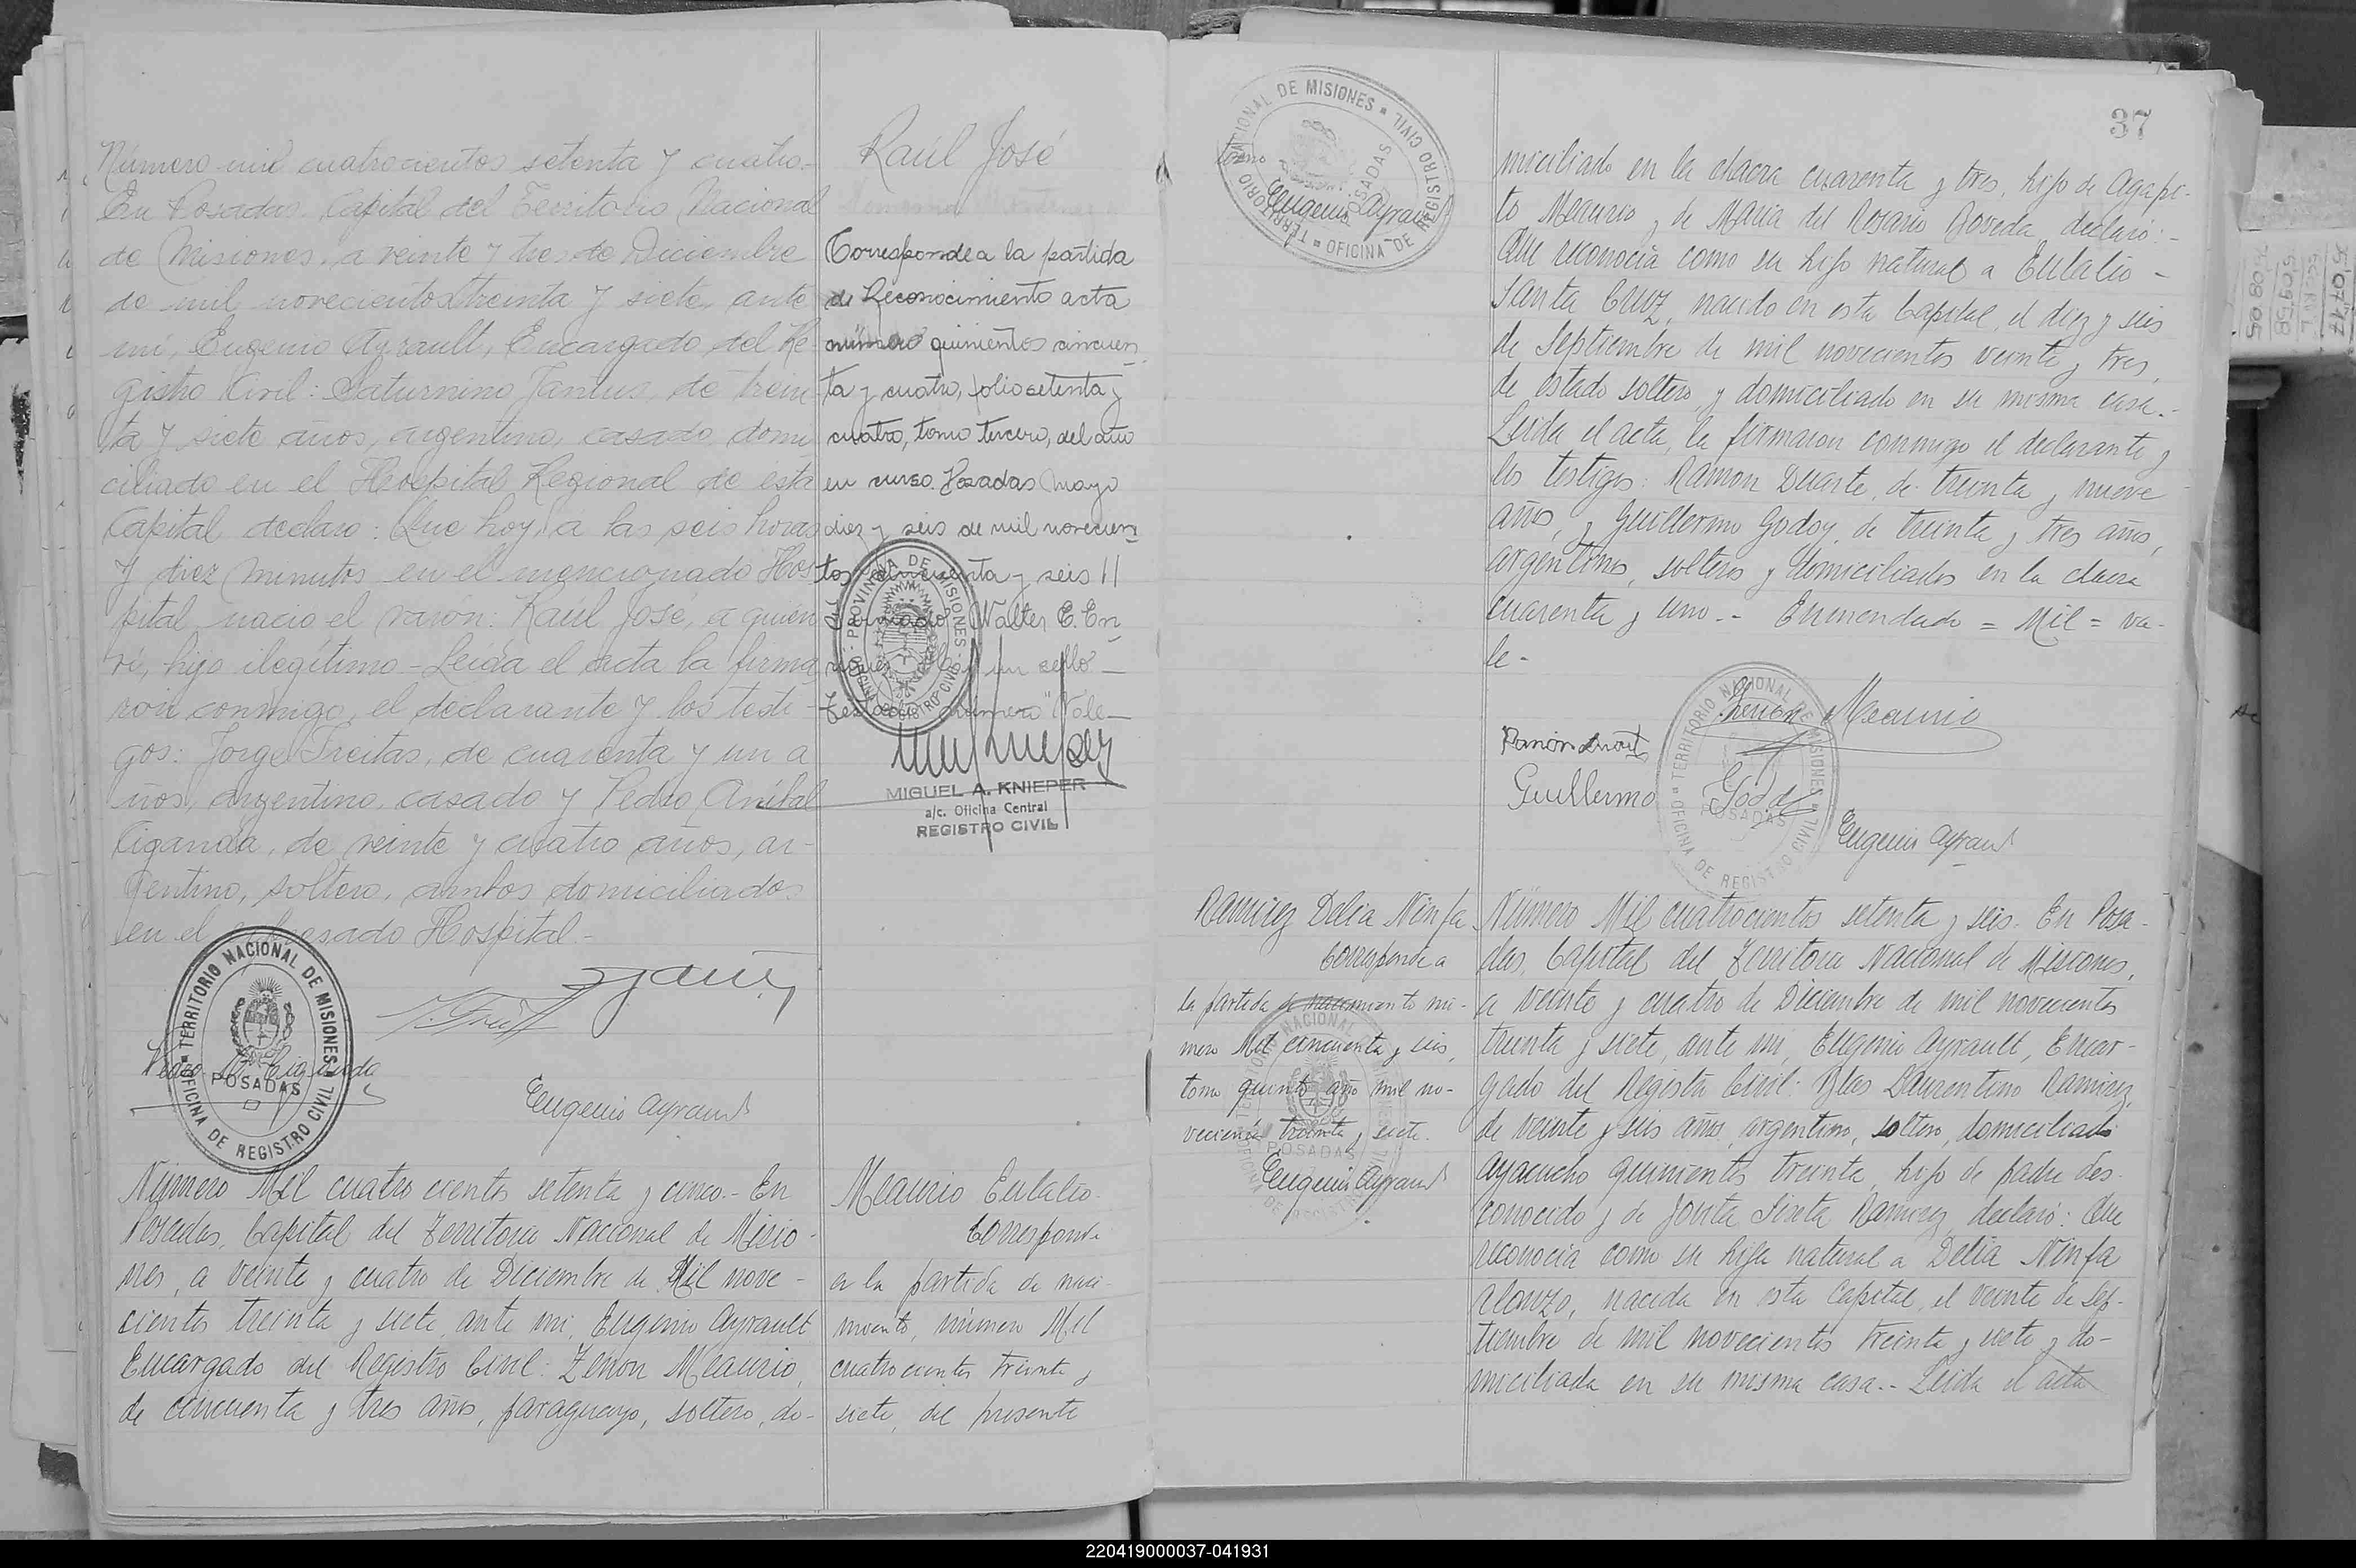 Número mil cuatrocientos setenta y cuatro.-
En Posadas Capital del Territorio Nacional
de Misiones, a veinte y tres de Diciembre
de mil novecientos treinta y siete, ante
mi, Eugenio Ayrault, Encargado del Re-
gistro Civil: Saturnino Jantus, de trein
ta y siete años, argentino, casado, domi
ciliado en el Hospital Regional de esta
Capital declaro: Que hoy, a las seis horas
y diez minutos en el mencionado Hos
pital nacio el varón: Raúl José, a quien
vi, hijo ilegítimo - Leida el acta la firma
ron conmigo, el declarante y los testi-
gos: Jorge Freitas, de cuarenta y un a
ños, argentino, casado y Pedro Anibal
Ciganda, de veinte y cuatro años, ar-
gentino, soltero, ambos domiciliados
en el expresado Hospital.-
TERRITORIO NACIONAL DE MISIONES
OFICINA DE REGISTRO CIVIL
POSADAS
Pedro A. Ciganda
Eugenio Ayrault
Raúl José
Corresponde a la partida
de Reconocimiento acta
número quinientos cincuen
ta y cuatro, folio setenta y
cuatro, tomo tercero, del año
en curso. Posadas Mayo
diez y seis de mil novecien
tos cincuenta y seis //
Walter E. En
un sello -
Testado: "número" Vale -
PROVINCIA DE MISIONES
OFICINA REGISTRO CIVIL
MIGUEL A. KNIEPER
a/c. Oficina Central
REGISTRO CIVIL
Número Mil cuatro cientos setenta y cinco.- En
Posadas, Capital del Territorio Nacional de Misio-
nes, a veinte y cuatro de Diciembre de Mil nove-
cientos treinta y siete, ante mi, Eugenio Ayrault
Encargado del Registro Civil: Zenon Meaurio,
de cincuenta y tres años, paraguayo, soltero, do-
Meaurio Eulalio
Corresponde
a la partida de naci-
miento, número Mil
cuatro cientos treinta y
siete, del presente
37
tomo
TERRITORIO NACIONAL DE MISIONES
OFICINA DE REGISTRO CIVIL
POSADAS
Eugenio Ayrault
miciliado en la chacra cuarenta y tres, hijo de Agapi-
to Meaurio y de Maria del Rosario Poveda, declaró:-
Que reconocia como su hijo natural a Eulalio -
Santa Cruz, nacido en esta Capital, el diez y seis
de Septiembre de mil novecientos veinte y tres,
de estado soltero, y domiciliado en su misma casa.-
Leida el acta, la firmaron conmigo el declarante y
los testigos: Ramon Duarte, de treinta y nueve
años, y Guillermo Godoy, de treinta y tres años,
argentinos, solteros y domiciliados en la chacra
cuarenta y uno.- Enmendado = Mil = va-
le -
Zenon Meaurio
Ramón Duarte
Guillermo Godoy
TERRITORIO NACIONAL DE MISIONES
OFICINA DE REGISTRO CIVIL
POSADAS
Eugenio Ayrault
Ramirez Delia Ninfa
Corresponde a
la partida de nacimiento nú-
mero Mil cincuenta y seis,
tomo quinto año mil no-
vecientos treinta y siete.
POSADAS
Eugenio Ayrault
Número Mil cuatrocientos setenta y seis. En Posa-
das, Capital del Territorio Nacional de Misiones,
a veinte y cuatro de Diciembre de mil novecientos
treinta y siete, ante mi, Eugenio Ayrault, Encar-
gado del Registro Civil: Blas Laurentino Ramirez,
de veinte y seis años, argentino, soltero, domiciliado
Ayacucho quinientos treinta, hijo de padre des-
conocido y de Ramirez, declaró: Que
reconocia como su hija natural a Delia Ninfa
Alonzo, nacida en esta Capital, el veinte de Sep-
tiembre de mil novecientos treinta y siete y do-
miciliada en su misma casa.- Leida el acta